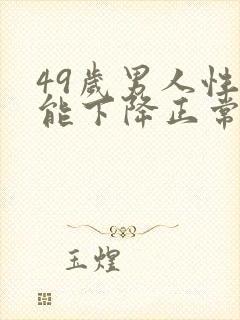 49岁男人性
能下降正常
玉煌